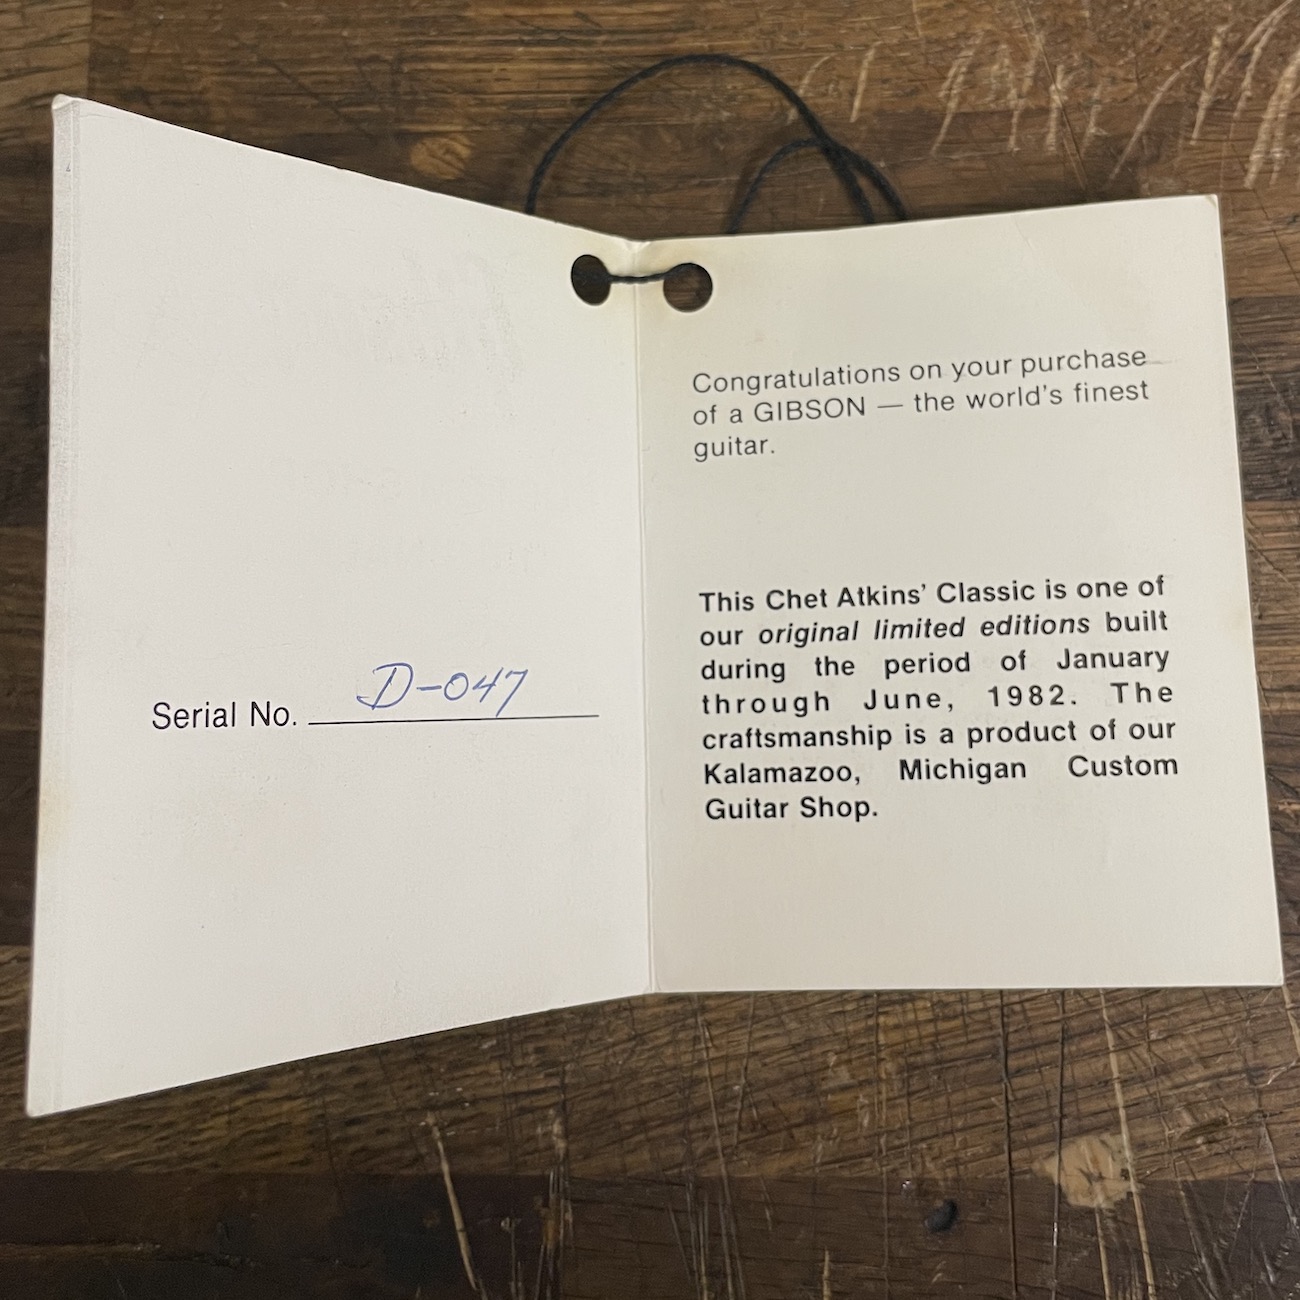 Serial No. D-047
Congratulations on your purchase
of a GIBSON — the world's finest
guitar.
This Chet Atkins' Classic is one of
our original limited editions built
during the period of January
through June, 1982. The
craftsmanship is a product of our
Kalamazoo, Michigan Custom
Guitar Shop.